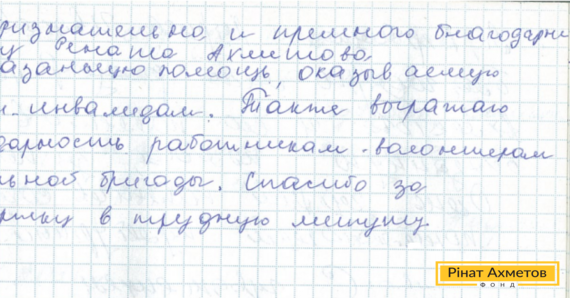 ризнательно и премного благодарны
у Рената Ахметова
азанную помощь, оказываемую
инвалидам. Также выражаю
дарность работникам - волонтерам
льной бригады. Спасибо за
ржку в трудную минуту
Рінат Ахметов
ФОНД